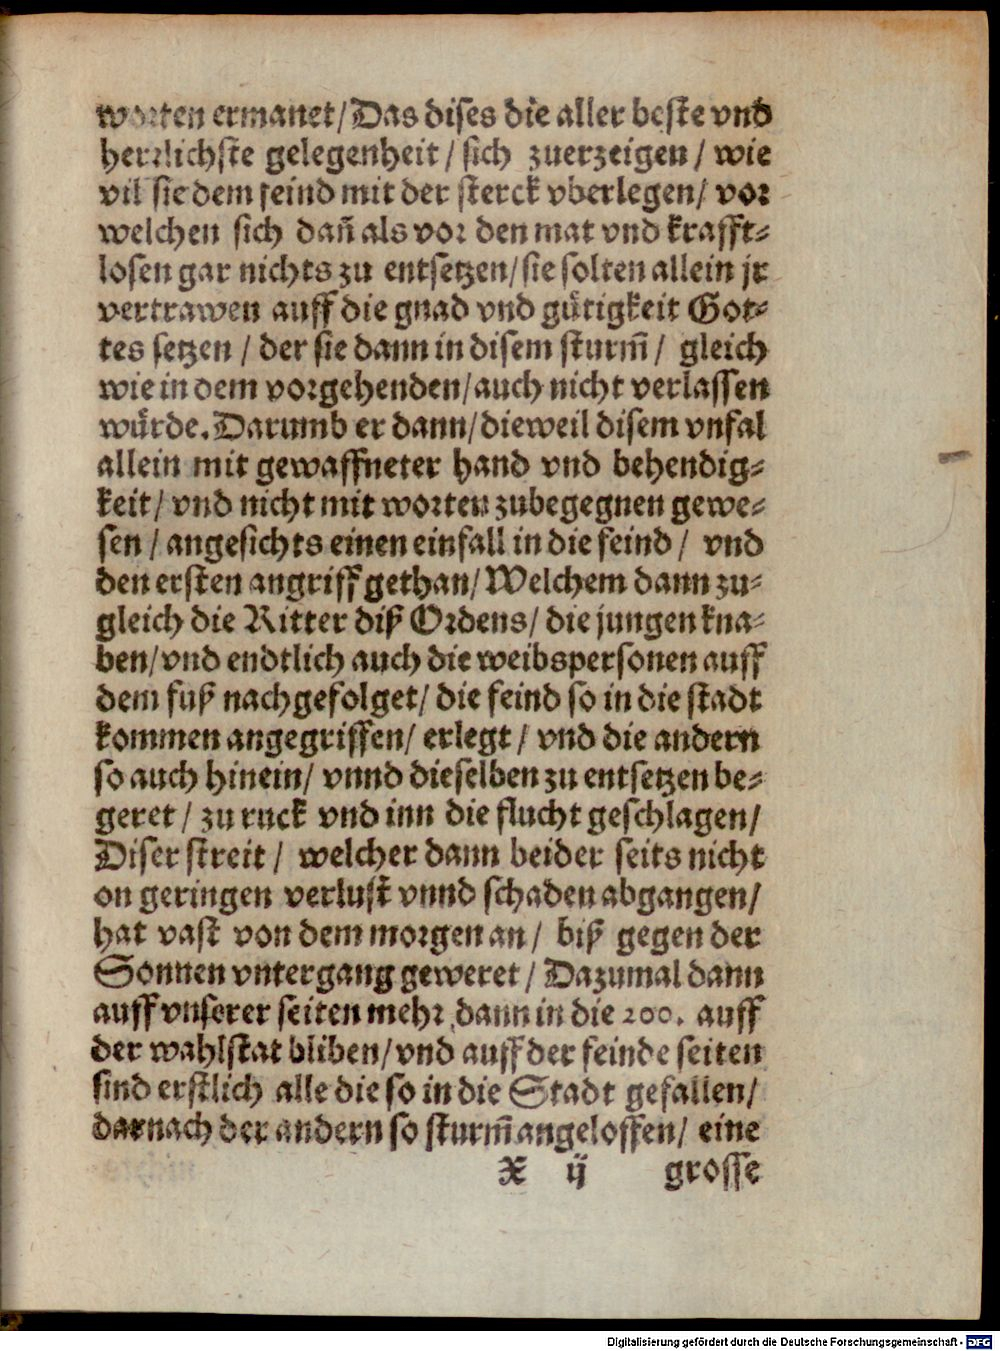 worten ermanet/Das dises die aller beste vnd
herrlichste gelegenheit/ sich zuerzeigen/ wie
vil sie dem feind mit der sterck vberlegen/ vor
welchen sich dañ als vor den mat vnd krafft⸗
losen gar nichts zu entsetzen/sie solten allein jr
vertrawen auff die gnad vnd gütigkeit Got⸗
tes setzen / der sie dann in disem sturm̃/ gleich
wie in dem vorgehenden/auch nicht verlassen
würde. Darumb er dann/dieweil disem vnfal
allein mit gewaffneter hand vnd behendig⸗
keit/ vnd nicht mit worten zubegegnen gewe⸗
sen / angesichts einen einfall in die feind / vnd
den ersten angriff gethan/ Welchem dann zu⸗
gleich die Ritter diß Ordens/ die jungen kna⸗
ben/vnd endtlich auch die weibspersonen auff
dem fuß nachgefolget/ die feind so in die stadt
kommen angegriffen/ erlegt / vnd die andern
so auch hinein/ vnnd dieselben zu entsetzen be⸗
geret / zu ruck vnd inn die flucht geschlagen/
Diser streit / welcher dann beider seits nicht
on geringen verlust vnnd schaden abgangen/
hat vast von dem morgen an/ biß gegen der
Sonnen vntergang geweret / Dazumal dann
auff vnserer seiten mehr dann in die 200. auff
der wahlstat bliben/vnd auff der feinde seiten
sind erstlich alle die so in die Stadt gefallen/
darnach der andern so sturm̃ angeloffen/ eine
X ij grosse
Digitalisierung gefördert durch die Deutsche Forschungsgemeinschaft - DFG